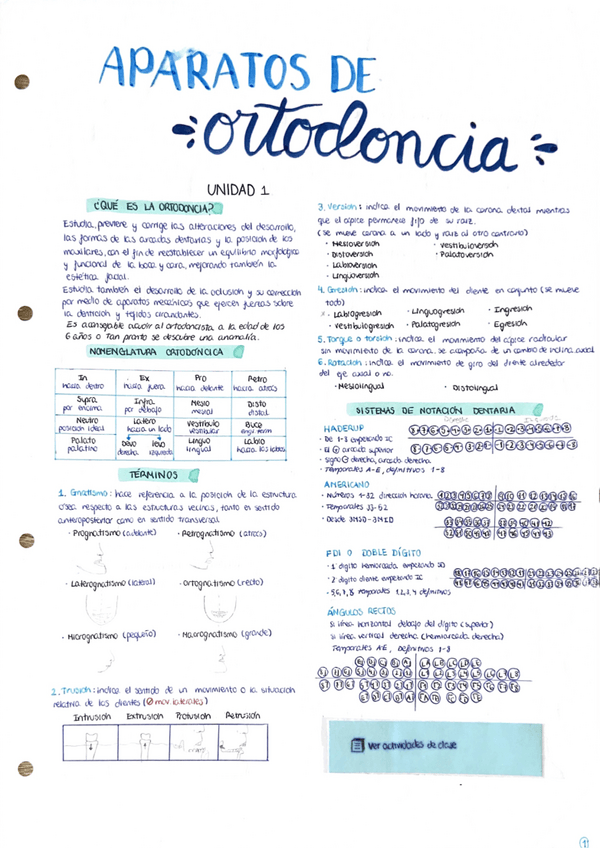 APARATOS DE
ortodoncia
UNIDAD 1
¿QUÉ ES LA ORTODONCIA?
Estudia, previene y corrige las alteraciones del desarrollo,
las formas de las arcadas dentarias y la posición de los
maxilares, con el fin de reestablecer un equilibrio morfológico
y funcional de la boca y cara, mejorando también la
estética facial.
Estudia también el desarrollo de la oclusión y su corrección
por medio de aparatos mecánicos que ejercen fuerzas sobre
la dentición y tejidos circundantes.
Es aconsejable acudir al ortodoncista a la edad de los
6 años o tan pronto se descubre una anomalía.
NOMENCLATURA ORTODÓNCICA
In Ex Pro Retro
hacia dentro hacia fuera hacia delante hacia atrás
Supra Infra Mesio Disto
por encima por debajo mesial distal
Neutro Latero Vestíbulo Buco
posición ideal hacia un lado vestibular
Palato Dexo levo Linguo Labio
palatino derecha izquierda lingual hacia los labios
TÉRMINOS
1. Gnatismo: hace referencia a la posición de la estructura
ósea respecto a las estructuras vecinas, tanto en sentido
anteroposterior como en sentido transversal
· Prognatismo (adelante) · Retrognatismo (atrás)
· Laterognatismo (lateral) · Ortognatismo (recto)
· Micrognatismo (pequeño) · Macrognatismo (grande)
2. Trusión: indica el sentido de un movimiento o la situación
relativa de los dientes (Ø mov. laterales)
Intrusión Extrusión Protusión Retrusión
3. Versión: indica el movimiento de la corona dental mientras
que el ápice permanece fijo de su raíz.
(se mueve corona a un lado y raíz al otro contrario)
· Mesioversión · Vestibuloversión
· Distoversión · Palatoversión
· Labioversión
· Linguoversión
4. Gresión: indica el movimiento del diente en conjunto (se mueve
todo)
· Labiogresión · Linguogresión · Ingresión
· Vestibulogresión · Palatogresión · Egresión
5. Torque o torsión: indica el movimiento del ápice radicular
sin movimiento de la corona, se acompaña de un cambio de inclina. axial
6. Rotación: indica el movimiento de giro del diente alrededor
del eje axial o no.
· Mesiolingual · Distolingual
SISTEMAS DE NOTACIÓN DENTARIA
HADERUP
· De 1-8 empezando IC
· Si ⊕ arcada superior
· Signo ⊖ derecha, arcada derecha.
· Temporales A-E, definitivos 1-8
AMERICANO
· Números 1-32 dirección horaria
· Temporales 33-52
· Desde
FDI O DOBLE DÍGITO
· 1 dígito hemiarcada empezando SD
· 2 dígito diente empezando IC
· 5,6,7,8 temporales 1,2,3,4 definitivos
ÁNGULOS RECTOS
Si línea horizontal debajo del dígito (superior)
Si línea vertical derecha (hemiarcada derecha)
Temporales A-E, Definitivos 1-8
Ver actividades de clase
1